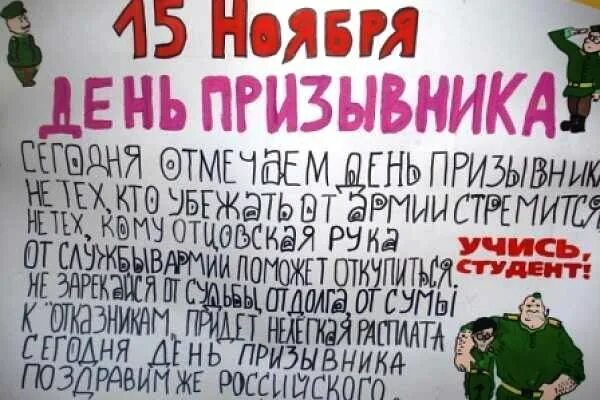 15 НОЯБРЯ
ДЕНЬ ПРИЗЫВНИКА
СЕГОДНЯ ОТМЕЧАЕМ ДЕНЬ ПРИЗЫВНИКА
НЕ ТЕХ, КТО УБЕЖАТЬ ОТ АРМИИ СТРЕМИТСЯ,
НЕ ТЕХ, КОМУ ОТЦОВСКАЯ РУКА
ОТ СЛУЖБЫ В АРМИИ ПОМОЖЕТ ОТКУПИТЬСЯ.
НЕ ЗАРЕКАЙСЯ ОТ СУДЬБЫ, ОТ ДОЛГА, ОТ СУМЫ
К "ОТКАЗНИКАМ" ПРИДЕТ НЕЛЕГКАЯ РАСПЛАТА
СЕГОДНЯ ДЕНЬ ПРИЗЫВНИКА
ПОЗДРАВИМ ЖЕ РОССИЙСКОГО..
УЧИСЬ,
СТУДЕНТ!